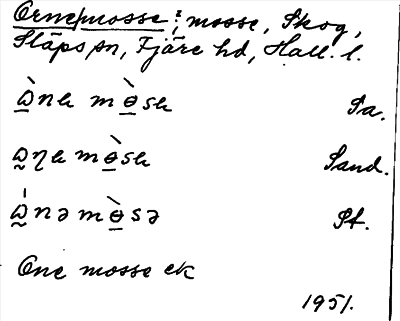 Ornemosse; mosse, Skog,
Släps sn, Fjäre hd, Hall. l.
mò̲sɘ Sa.
mò̲sɘ Sand.
mò̲sə St.
One mosse ek
1951.